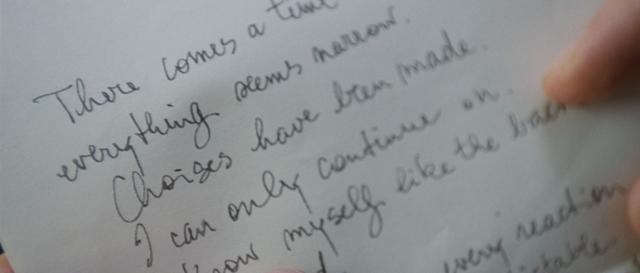 There comes a time
everything seems narrow.
Choises have been made.
I can only continue on.
know myself like the back
every reaction